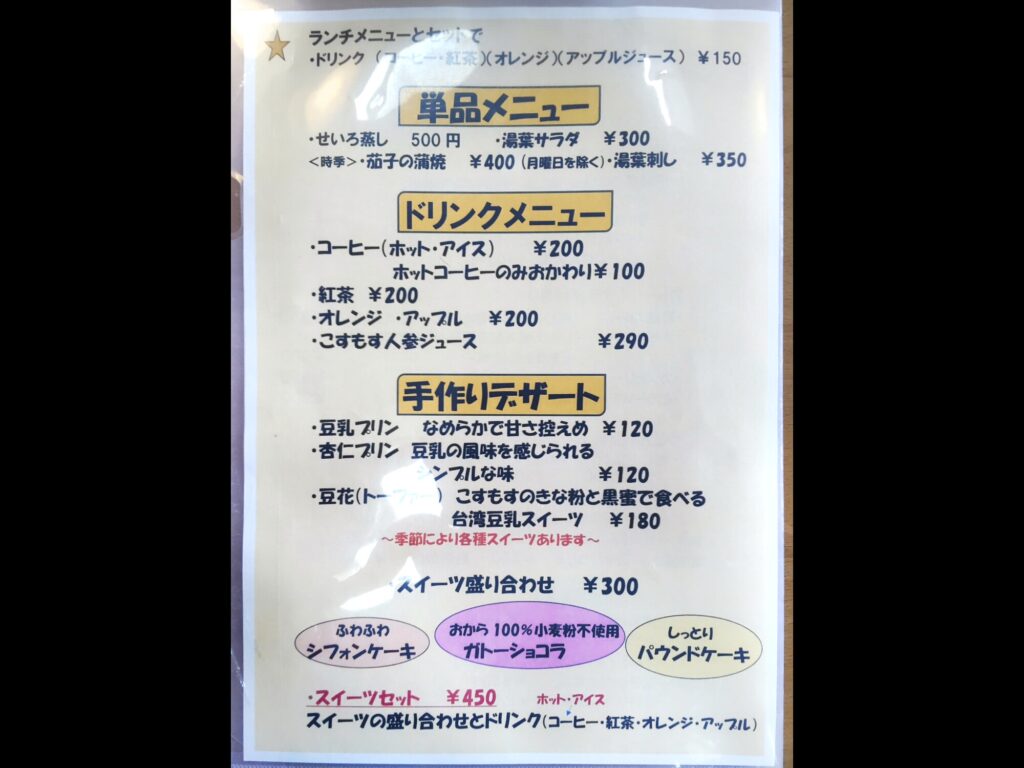 ランチメニューとセットで
・ドリンク（コーヒー・紅茶）（オレンジ）（アップルジュース） ￥150
単品メニュー
・せいろ蒸し 500円 ・湯葉サラダ ￥300
＜時季＞・茄子の蒲焼 ￥400（月曜日を除く）・湯葉刺し ￥350
ドリンクメニュー
・コーヒー（ホット・アイス） ￥200
ホットコーヒーのみおかわり￥100
・紅茶 ￥200
・オレンジ ・アップル ￥200
・こすもす人参ジュース ￥290
手作りデザート
・豆乳プリン なめらかで甘さ控えめ ￥120
・杏仁プリン 豆乳の風味を感じられる
シンプルな味 ￥120
・豆花（トーファー） こすもすのきな粉と黒蜜で食べる
台湾豆乳スイーツ ￥180
～季節により各種スイーツあります～
・スイーツ盛り合わせ ￥300
ふわふわ
シフォンケーキ
おから100％小麦粉不使用
ガトーショコラ
しっとり
パウンドケーキ
・スイーツセット ￥450 ホット・アイス
スイーツの盛り合わせとドリンク（コーヒー・紅茶・オレンジ・アップル）